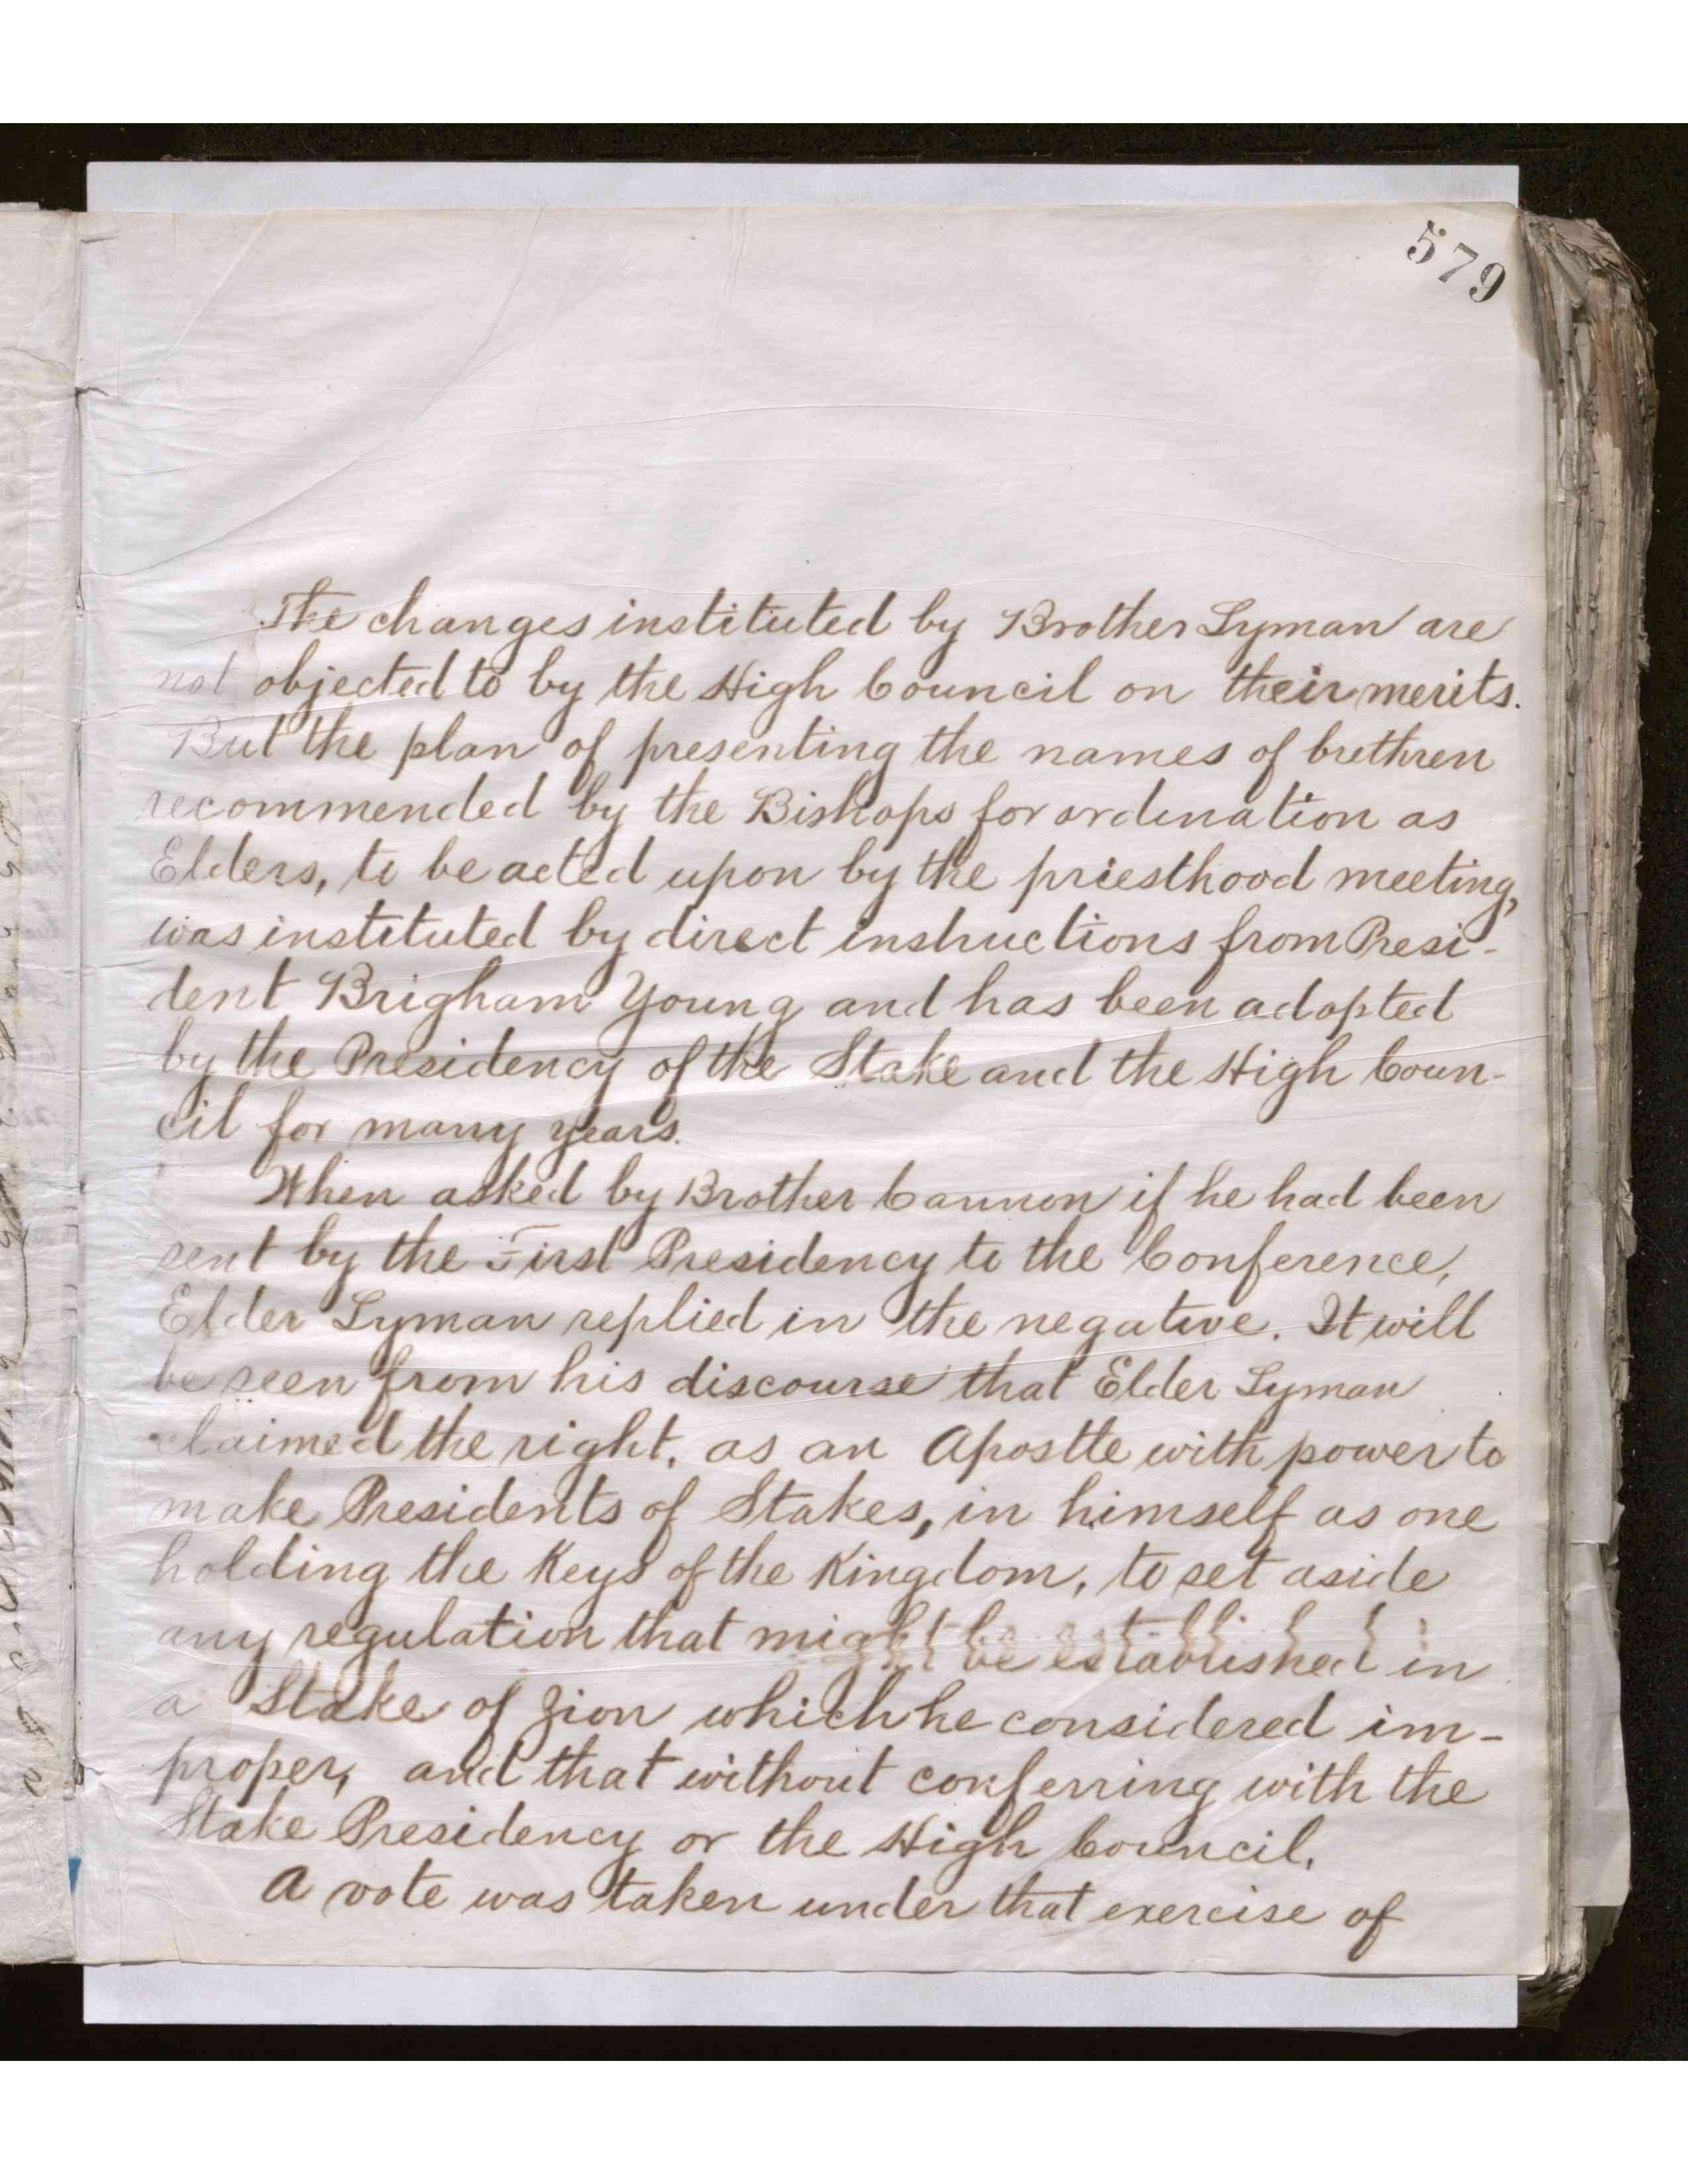 579
The changes instituted by Brother Lyman are
not objected to by the High Council on their merits.
But the plan of presenting the names of brethren
recommended by the Bishops for ordination as
Elders, to be acted upon by the priesthood meeting,
was instituted by direct instructions from Presi-
dent Brigham Young and has been adopted
by the Presidency of the Stake and the High Coun-
cil for many years.
When asked by Brother Cannon if he had been
sent by the First Presidency to the Conference,
Elder Lyman replied in the negative. It will
be seen from his discourse that Elder Lyman
claimed the right, as an Apostle with power to
make Presidents of Stakes, in himself as one
holding the Keys of the Kingdom, to set aside
any regulation that might be established in
a Stake of Zion which he considered im-
proper, and that without conferring with the
Stake Presidency or the High Council.
A vote was taken under that exercise of